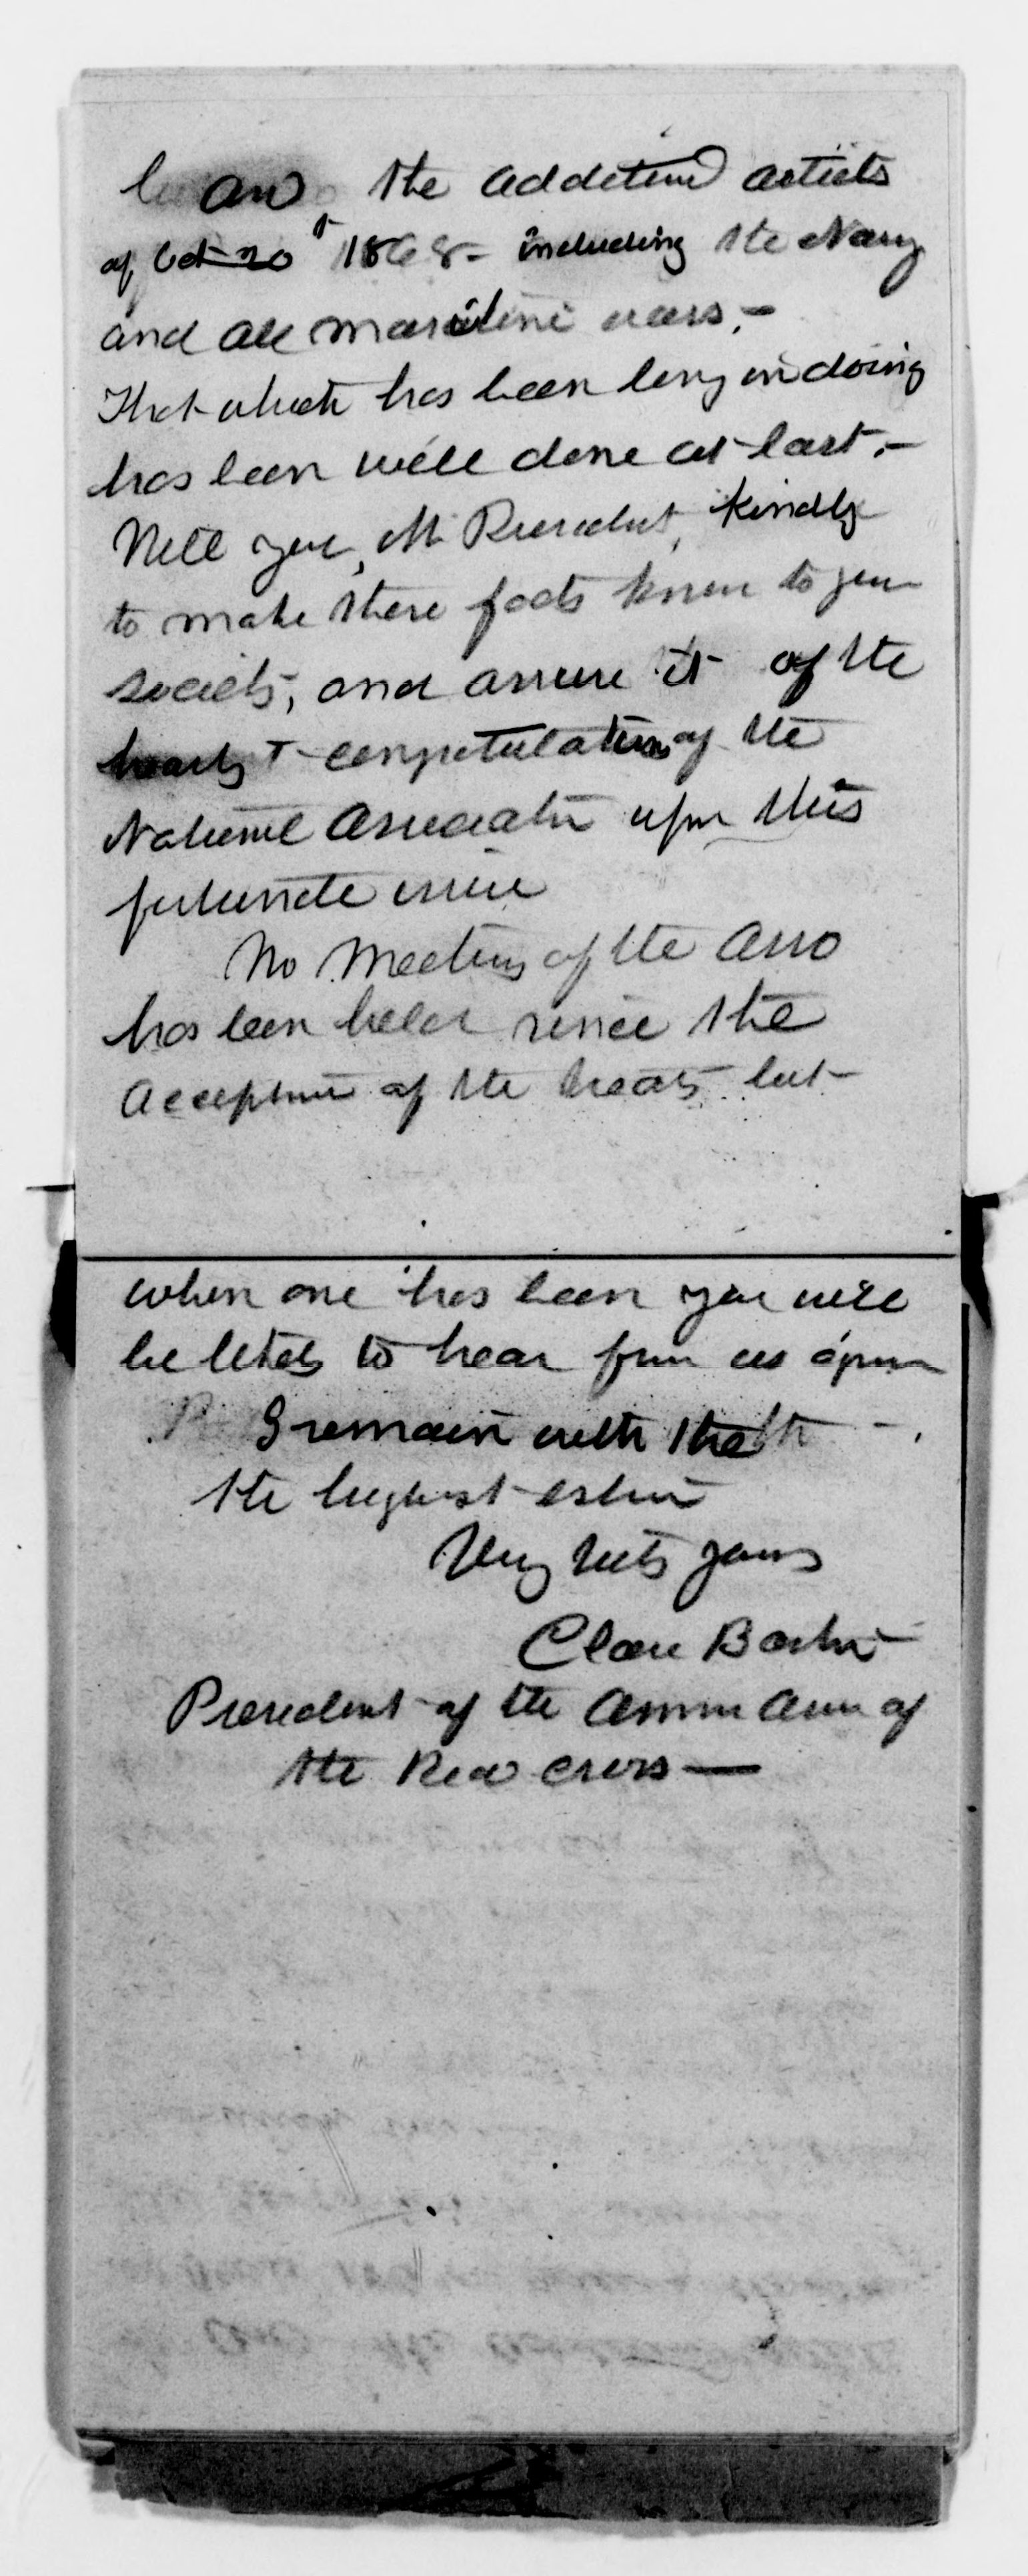 and the additional articles
of Oct 20" 1868 - including the Navy
and all maritime wars, -
That which has been long in doing
has been well done at last. -
Will you, Mr President, kindly
to make these facts known to your
society, and assure it of the
hearty congratulations of the
National Association upon this
fortunate issue
No Meeting of the Asso
has been held since the
Acceptance of the treaty but
when one has been you will
be likely to hear from us again
I remain with the
the highest esteem
Very truly yours
Clara Barton
President of the Amn Assn of
the Red Cross —